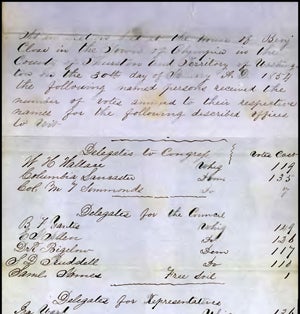 At an election held at the house of Benj
Close in the Town of Olympia in the
County of Thurston and Territory of Washing
ton on the 30th day of January A.D. 1854
the following named persons received the
number of votes annexed to their respective
names for the following described offices
to wit
Delegates to Congress Votes Cast
W H Wallace Whig 119
Columbia Lancaster Dem 135
Col M T Simmonds Do 7
Delegates for the Council
B F Yantis Whig 129
Do 126
D R Bigelow Dem 117
S D Ruddell Do 118
Saml James Free Soil 1
Delegates for Representatives
Whig 126